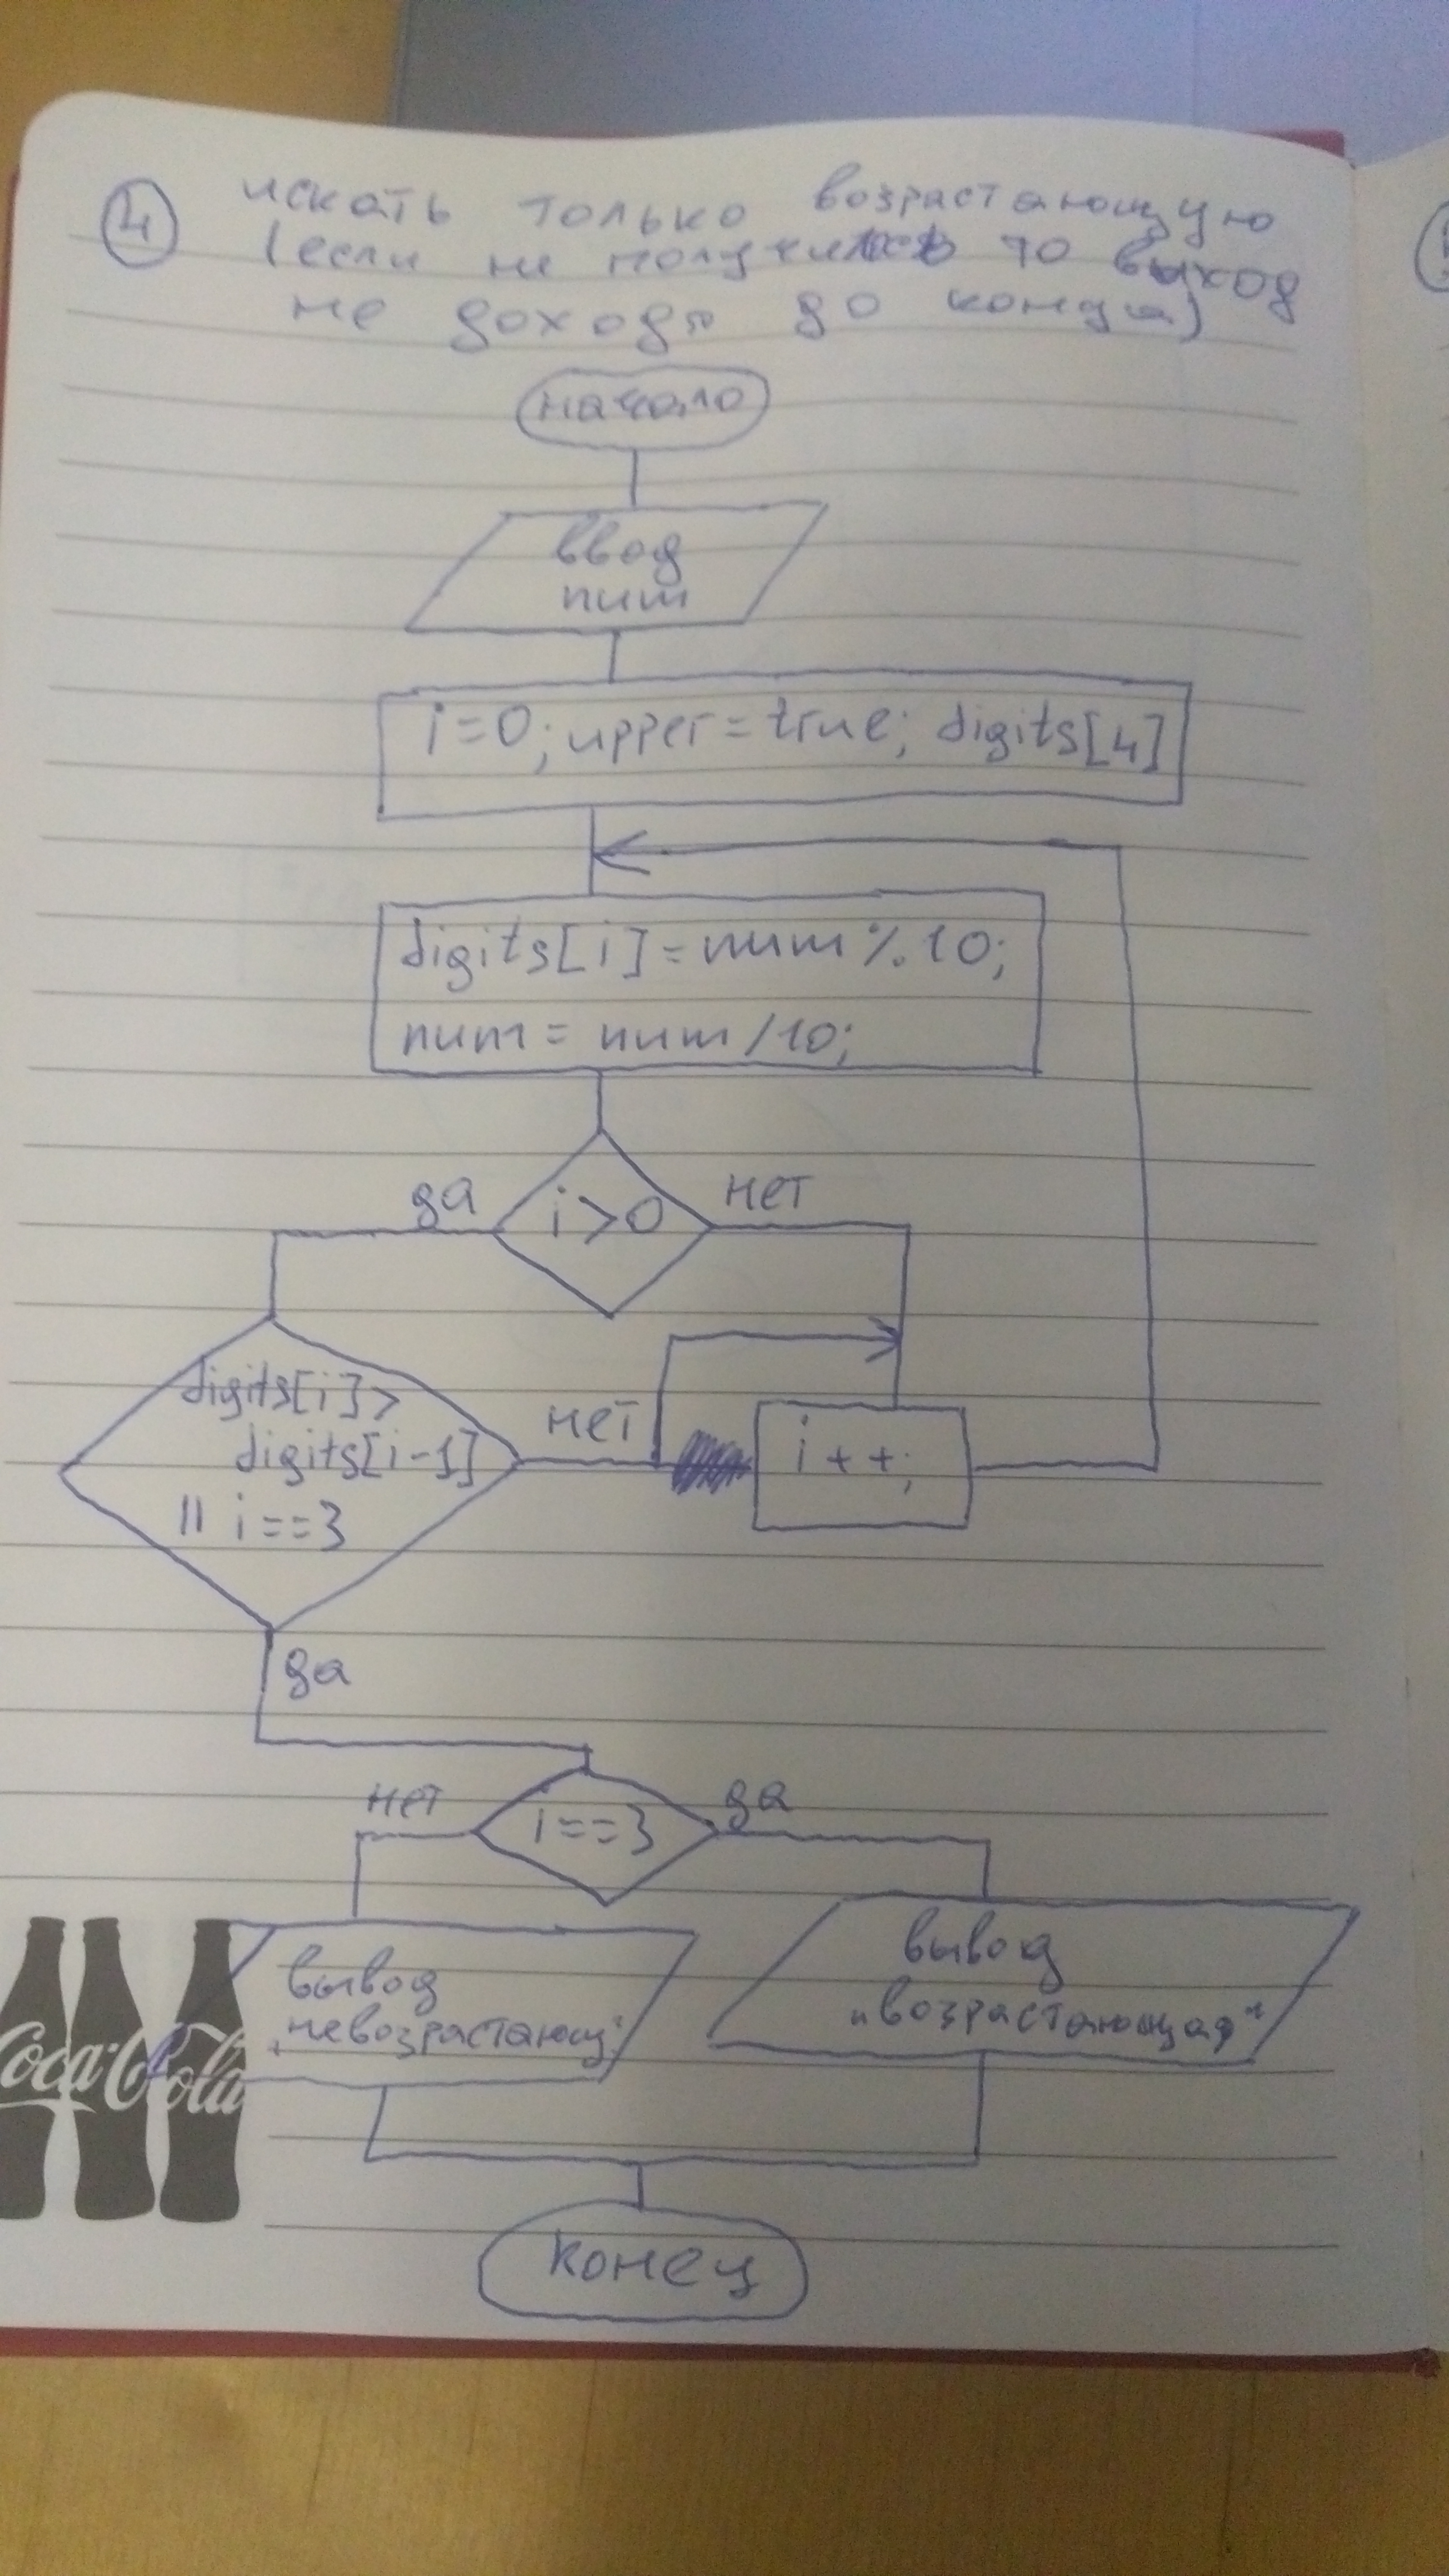 4
искать только возрастающую
(если не получилось то выход
не доходя до конца)
начало
ввод
num
i=0; upper=true; digits[4]
digits[i]=num%10;
num=num/10;
да
i>0
нет
digits[i]>
digits[i-1]
|| i==3
нет
i++;
да
нет
i==3
да
вывод
„невозрастающ."
вывод
„возрастающая"
Coca-Cola
конец